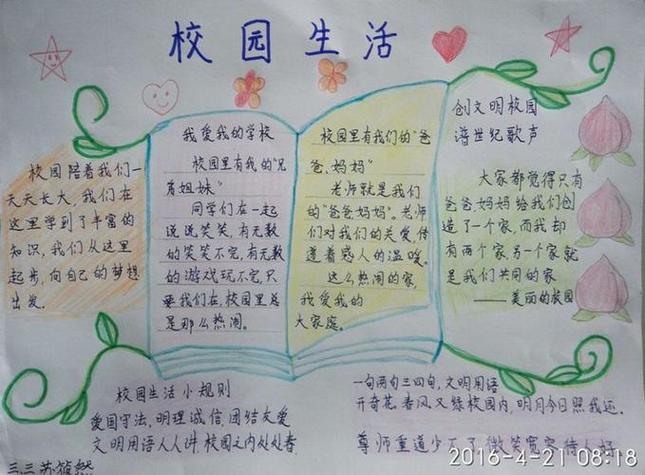 校园生活
校园陪着我们一
天天长大,我们在
这里学到了丰富的
知识,我们从这里
起步,向自己的梦想
出发。
我爱我的学校
校园里有我的"兄
弟姐妹"
同学们在一起
说说笑笑,有无数
的笑笑不完,有无数
的游戏玩不完,只
要我们在,校园里总
是那么热闹。
校园里有我们的"爸
爸、妈妈"
老师就是我们
的"爸爸妈妈"。老师
们对我们的关爱,传
递着感人的温暖。
这么热闹的家,
我爱我的
大家庭。
创文明校园
谱世纪歌声
大家都觉得只有
爸爸、妈妈给我们创
造了一个家,而我却
有两个家,另一个家就
是我们共同的家
——美丽的校园
校园生活小规则
爱国守法,明理诚信,团结友爱
文明用语人人讲,校园之内处处春
一句两句三四句,文明用语
开奇花,春风又绿校园内,明月今日照我还。
尊师重道少不了,微笑宽容待人好
三.三苏
2016-4-21 08:18